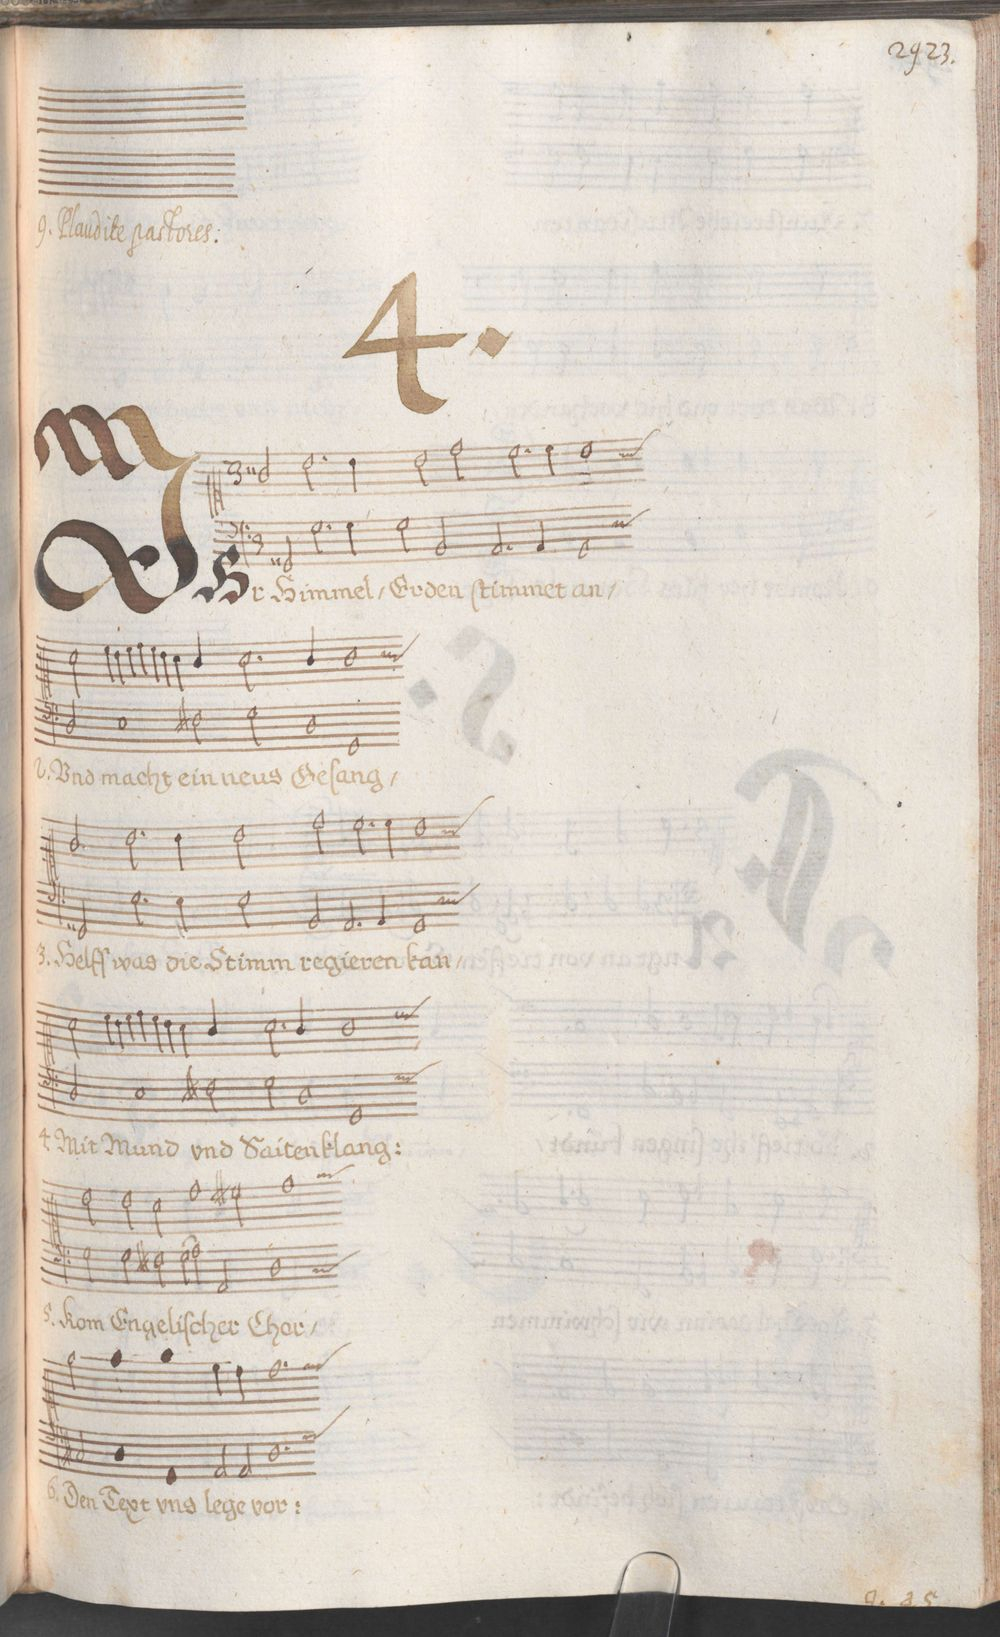 2923.
9. Plaudite pastores:
4.
Ihr Himmel / Erden stimmet an /
2. Vnd macht ein neus Gesang /
3. Helff was die Stimm regieren kan /
4. Mit Mund vnd Saitenklang:
5. Kom Engelischer Chor /
6. Den Text vns lege vor: